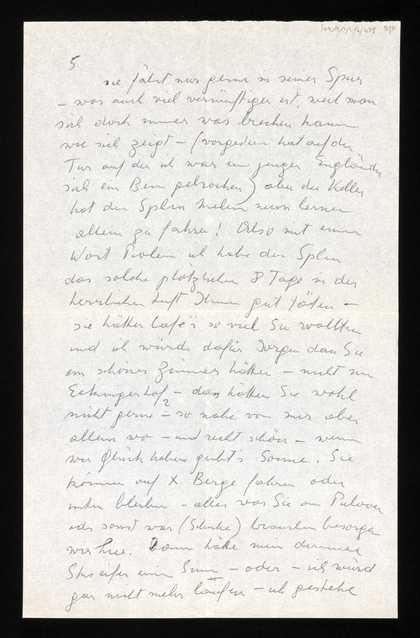 5
sie fährt nur gerne in seiner Spur
– was auch viel vernünftiger ist, weil man
sich doch immer was brechen kann
wie sich zeigt – (vorgestern hat auf der
Tur auf der ich war ein junger Engländer
sich ein Bein gebrochen) aber der Keller
hat den Splin
allein zu fahren! Also mit einem
Wort ich habe den Splin
das solche plötzlichen 8 Tage in der
herrlichen Luft Ihnen gut täten –
sie hätten Café's so viel Sie wollten
und ich würde dafür sorgen dass Sie
ein schönes Zimmer hätten – nicht im
– das hätten Sie wohl
nicht gerne? – so nahe von mir aber
allein wo – und recht schön – wenn
wir Glück haben gibt's Sonne. Sie
können auf X Berge fahren oder
unten bleiben – alles was Sie an Pulover
oder sonst was (Schuhe) brauchen besorgen
wir hier. Dann hätte mein dummer
einen Sinn – oder – ich würde
gar nicht mehr laufen – ich gestehe